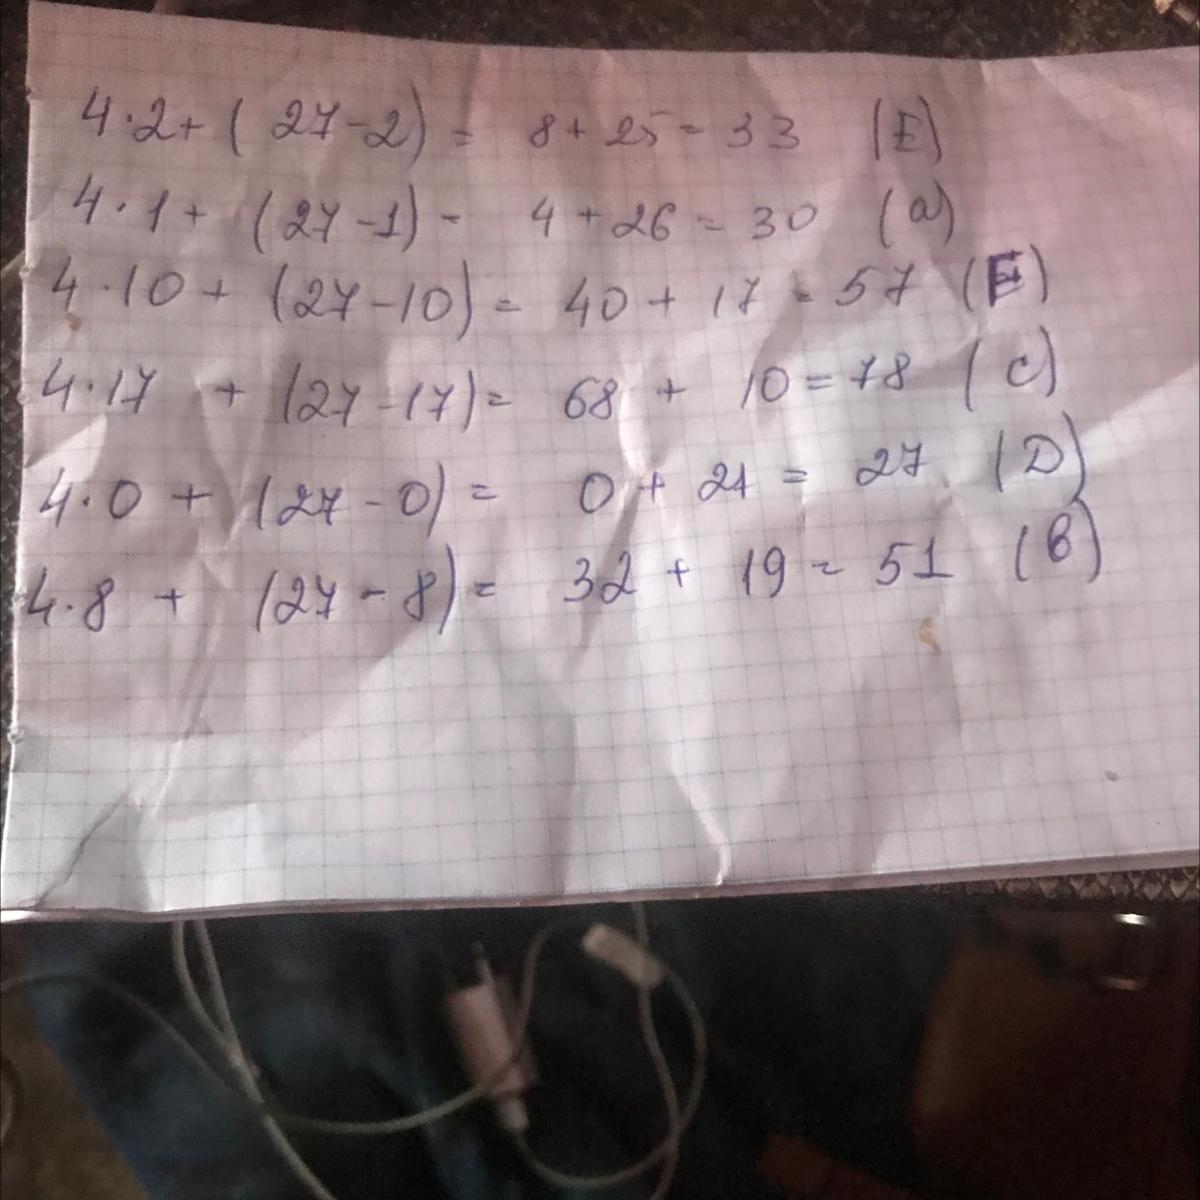 4·2+(27-2)= 8+25=33 (E)
4·1+(27-1)- 4+26=30 (a)
4·10+(27-10)= 40+17=57 (F)
4·17+(27-17)= 68+10=78 (C)
4·0+(27-0)= 0+21=27 (D)
4·8+(27-8)= 32+19=51 (B)